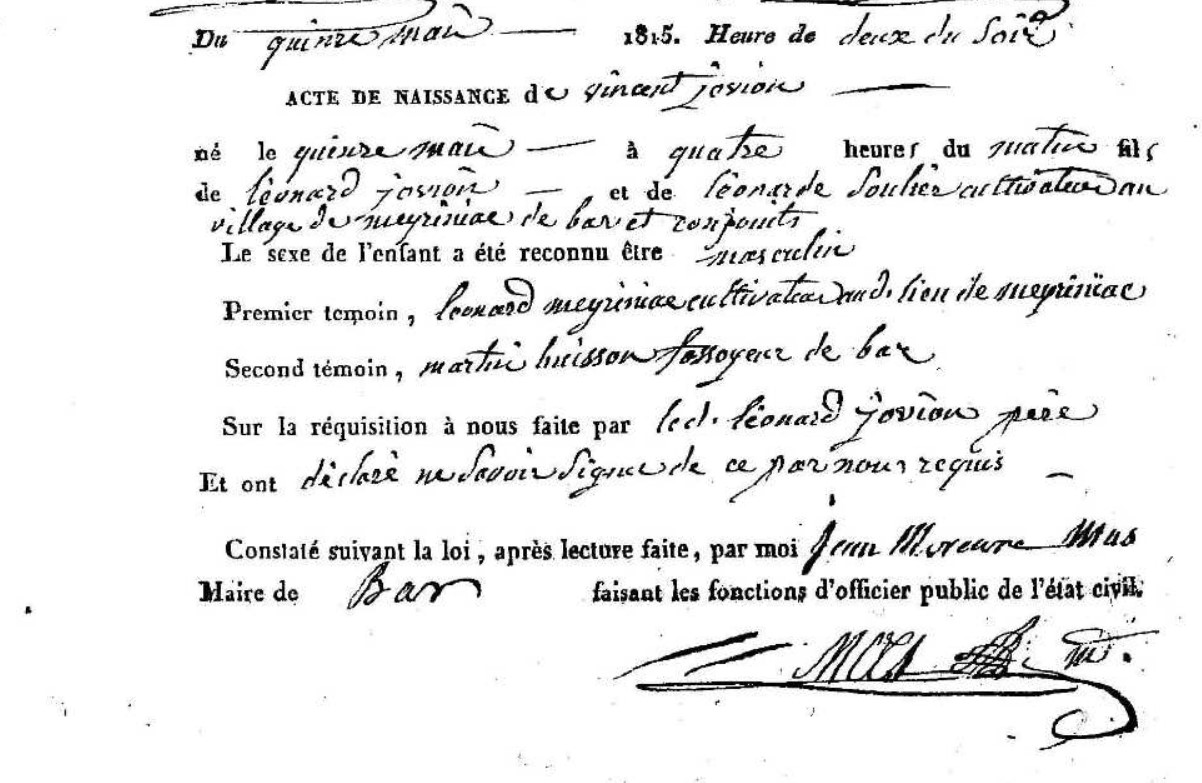 Du quinze mai 1815. Heure de deux du Soir
ACTE DE NAISSANCE de vincent jovion
né le quinze mai à quatre heures du matin fils
de léonard jovion et de léonarde Soulier cultivateur au
village de meyriniac de bar et conjoints
Le sexe de l'enfant a été reconnu être masculin
Premier temoin, leonard meyriniac cultivateur aud. lieu de meyriniac
Second témoin, martin buisson fossoyeur de bar
Sur la réquisition à nous faite par led. léonard jovion père
Et ont déclaré ne Savoir Signer de ce par nous requis
Constaté suivant la loi, après lecture faite, par moi Jean Mas
Maire de Bar faisant les fonctions d'officier public de l'état civil.